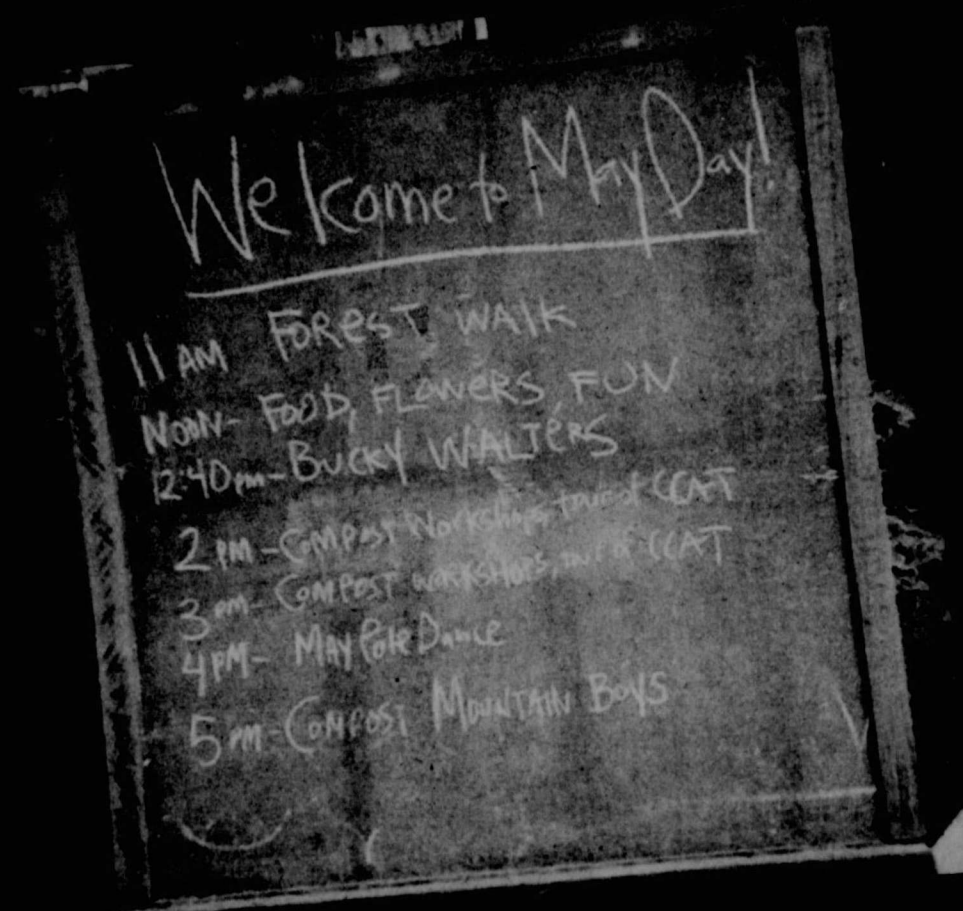 Welcome to May Day!
11 AM FOREST WALK
NOON- FOOD, FLOWERS FUN
12:40pm-BUCKY WALTERS
2 PM-COMPOST Workshops, tour of CCAT
3 pm- COMPOST WORKSHOPS, tour of CCAT
4PM- MAY Pole Dance
5 PM-COMPOST MOUNTAIN BOYS